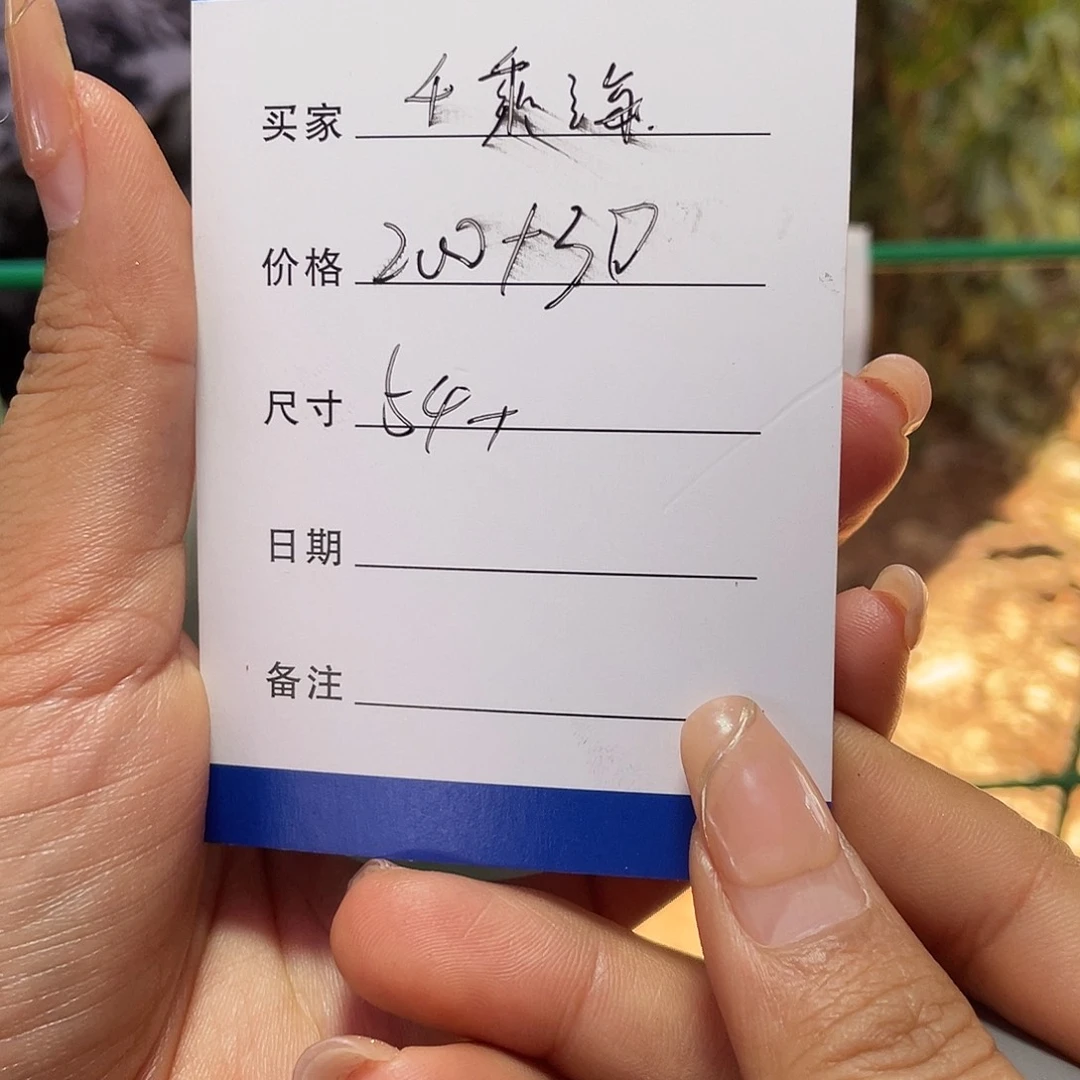 买家 千乘海
价格 200+50
尺寸 54+
日期
备注